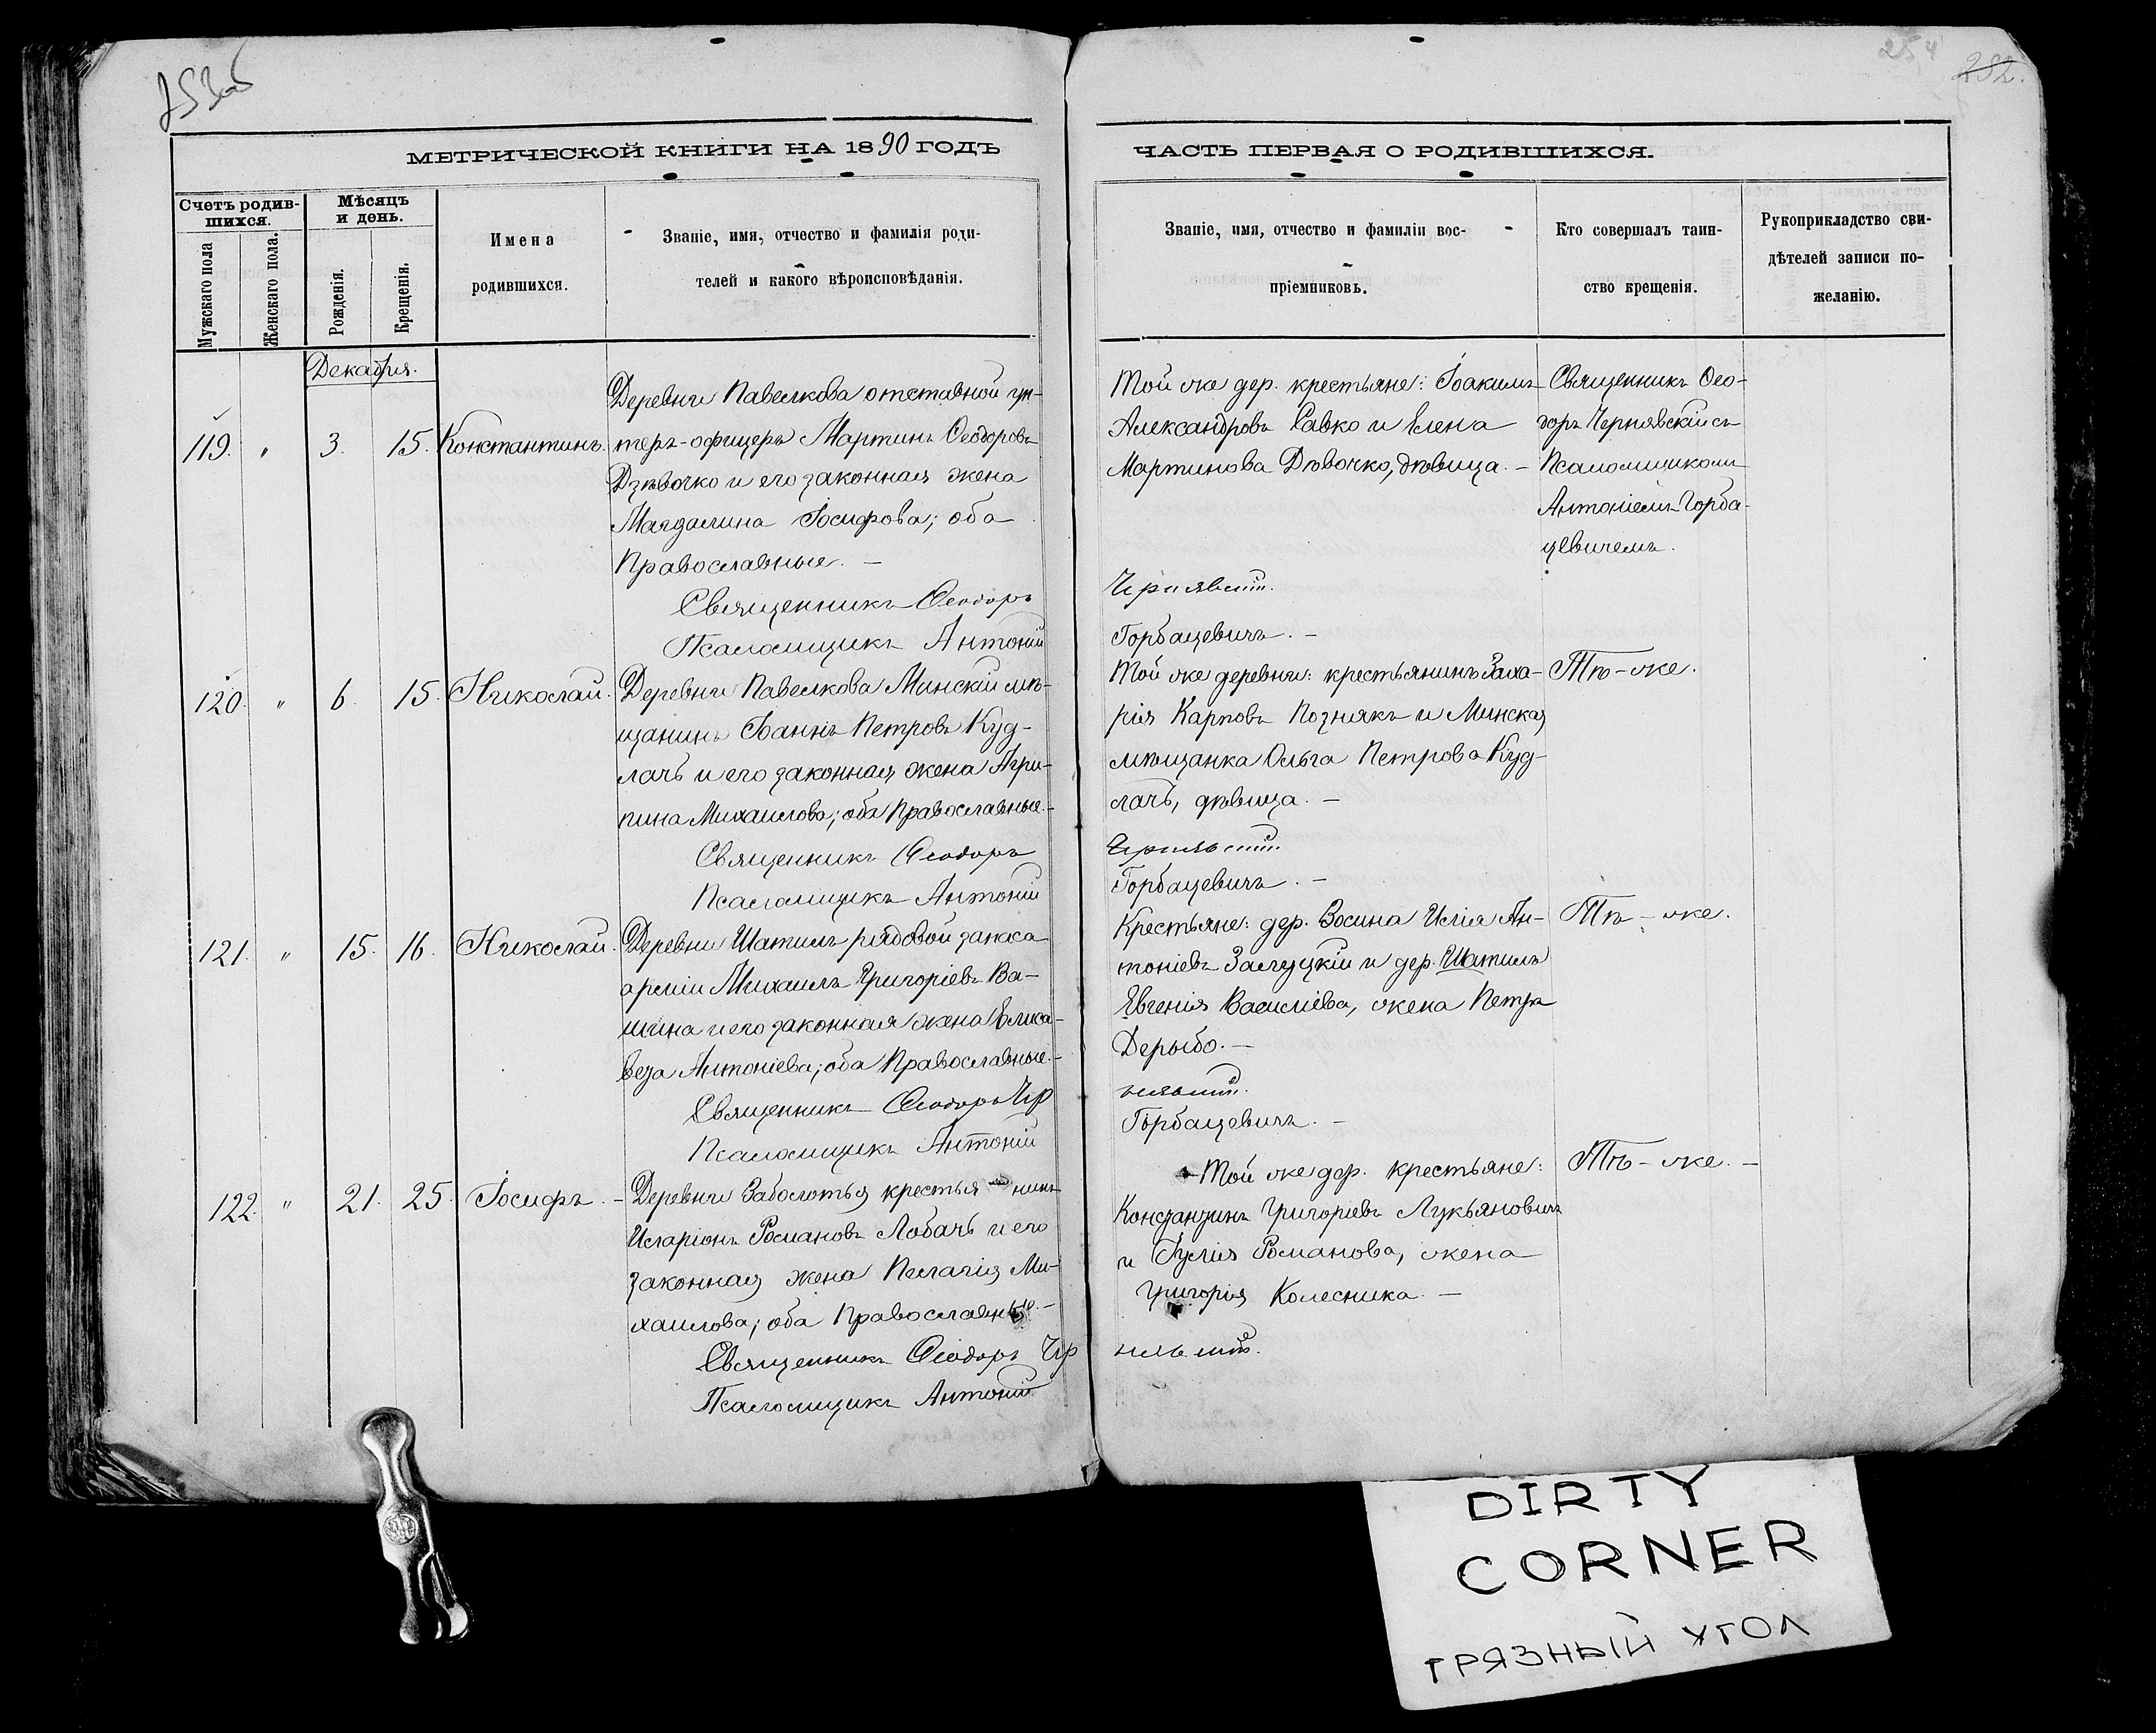 253об
254
252.
МЕТРИЧЕСКОЙ КНИГИ НА 1890 ГОДЪ
Счетъ родив-
шихся.
Мужскаго пола
Женскаго пола.
Мѣсяцъ
и день.
Рожденія.
Крещенія.
Имена
родившихся.
Званіе, имя, отчество и фамилія роди-
телей и какого вѣроисповѣданія.
Декабря.
119. " 3. 15. Константинъ.
Деревни Павелкова отставной ун-
теръ-офицеръ Мартинъ Ѳеодоровъ
Дзѣвочко и его законная жена
Магдалина Іосифова; оба
Православные. —
Священникъ Ѳеодоръ
Псаломщикъ Антоній
120. " 6. 15. Николай.
Деревни Павелкова Минскій мѣ-
щанинъ Іоаннъ Петровъ Куд-
лачъ и его законная жена Агри-
пина Михаилова; оба Православные. —
Священникъ Ѳеодоръ
Псаломщикъ Антоній
121. " 15. 16. Николай.
Деревни Шатилъ рядовой запаса
арміи Михаилъ Григоріевъ Ва-
шина и его законная жена Елиса-
веза Антоніева; оба Православные. —
Священникъ Ѳеодоръ Чер
Псаломщикъ Антоній
122. " 21. 25. Іосифъ. —
Деревни Заболотья крестья нинъ
Иларіонъ Романовъ Лобачъ и его
законная жена Пелагія Ми-
хаилова; оба Православные. —
Священникъ Ѳеодоръ Чер
Псаломщикъ Антоній
ЧАСТЬ ПЕРВАЯ О РОДИВШИХСЯ.
Званіе, имя, отчество и фамиліи вос-
пріемниковъ.
Кто совершалъ таин-
ство крещенія.
Рукоприкладство сви-
дѣтелей записи по-
желанію.
Той же дер. крестьяне: Іоакимъ
Александровъ Савко и Елена
Мартинова Дѣвочко, дѣвица. —
Чернявскій.
Горбацевичъ. —
Священникъ Ѳео-
доръ Чернявскій съ
Псаломщикомъ
Антоніемъ Горба-
цевичемъ.
Той же деревни: крестьянинъ Заха-
рія Карповъ Познякъ и Минская
мѣщанка Ольга Петрова Куд-
лачъ, дѣвица. —
Чернявскій.
Горбацевичъ. —
Тѣ-же.
Крестьяне: дер. Восина Илія Ан-
тоніевъ Заслуцкій и дер. Шатилъ
Евгенія Василіева, жена Петра
Дерыбо. —
нявскій.
Горбацевичъ. —
Тѣ-же.
Той же дер. крестьяне:
Констанзинъ Григоріевъ Лукьяновичъ
и Іулія Романова, жена
Григорія Колесника. —
нявскій.
Тѣ-же. —
DIRTY
CORNER
ГРЯЗНЫЙ УГОЛ